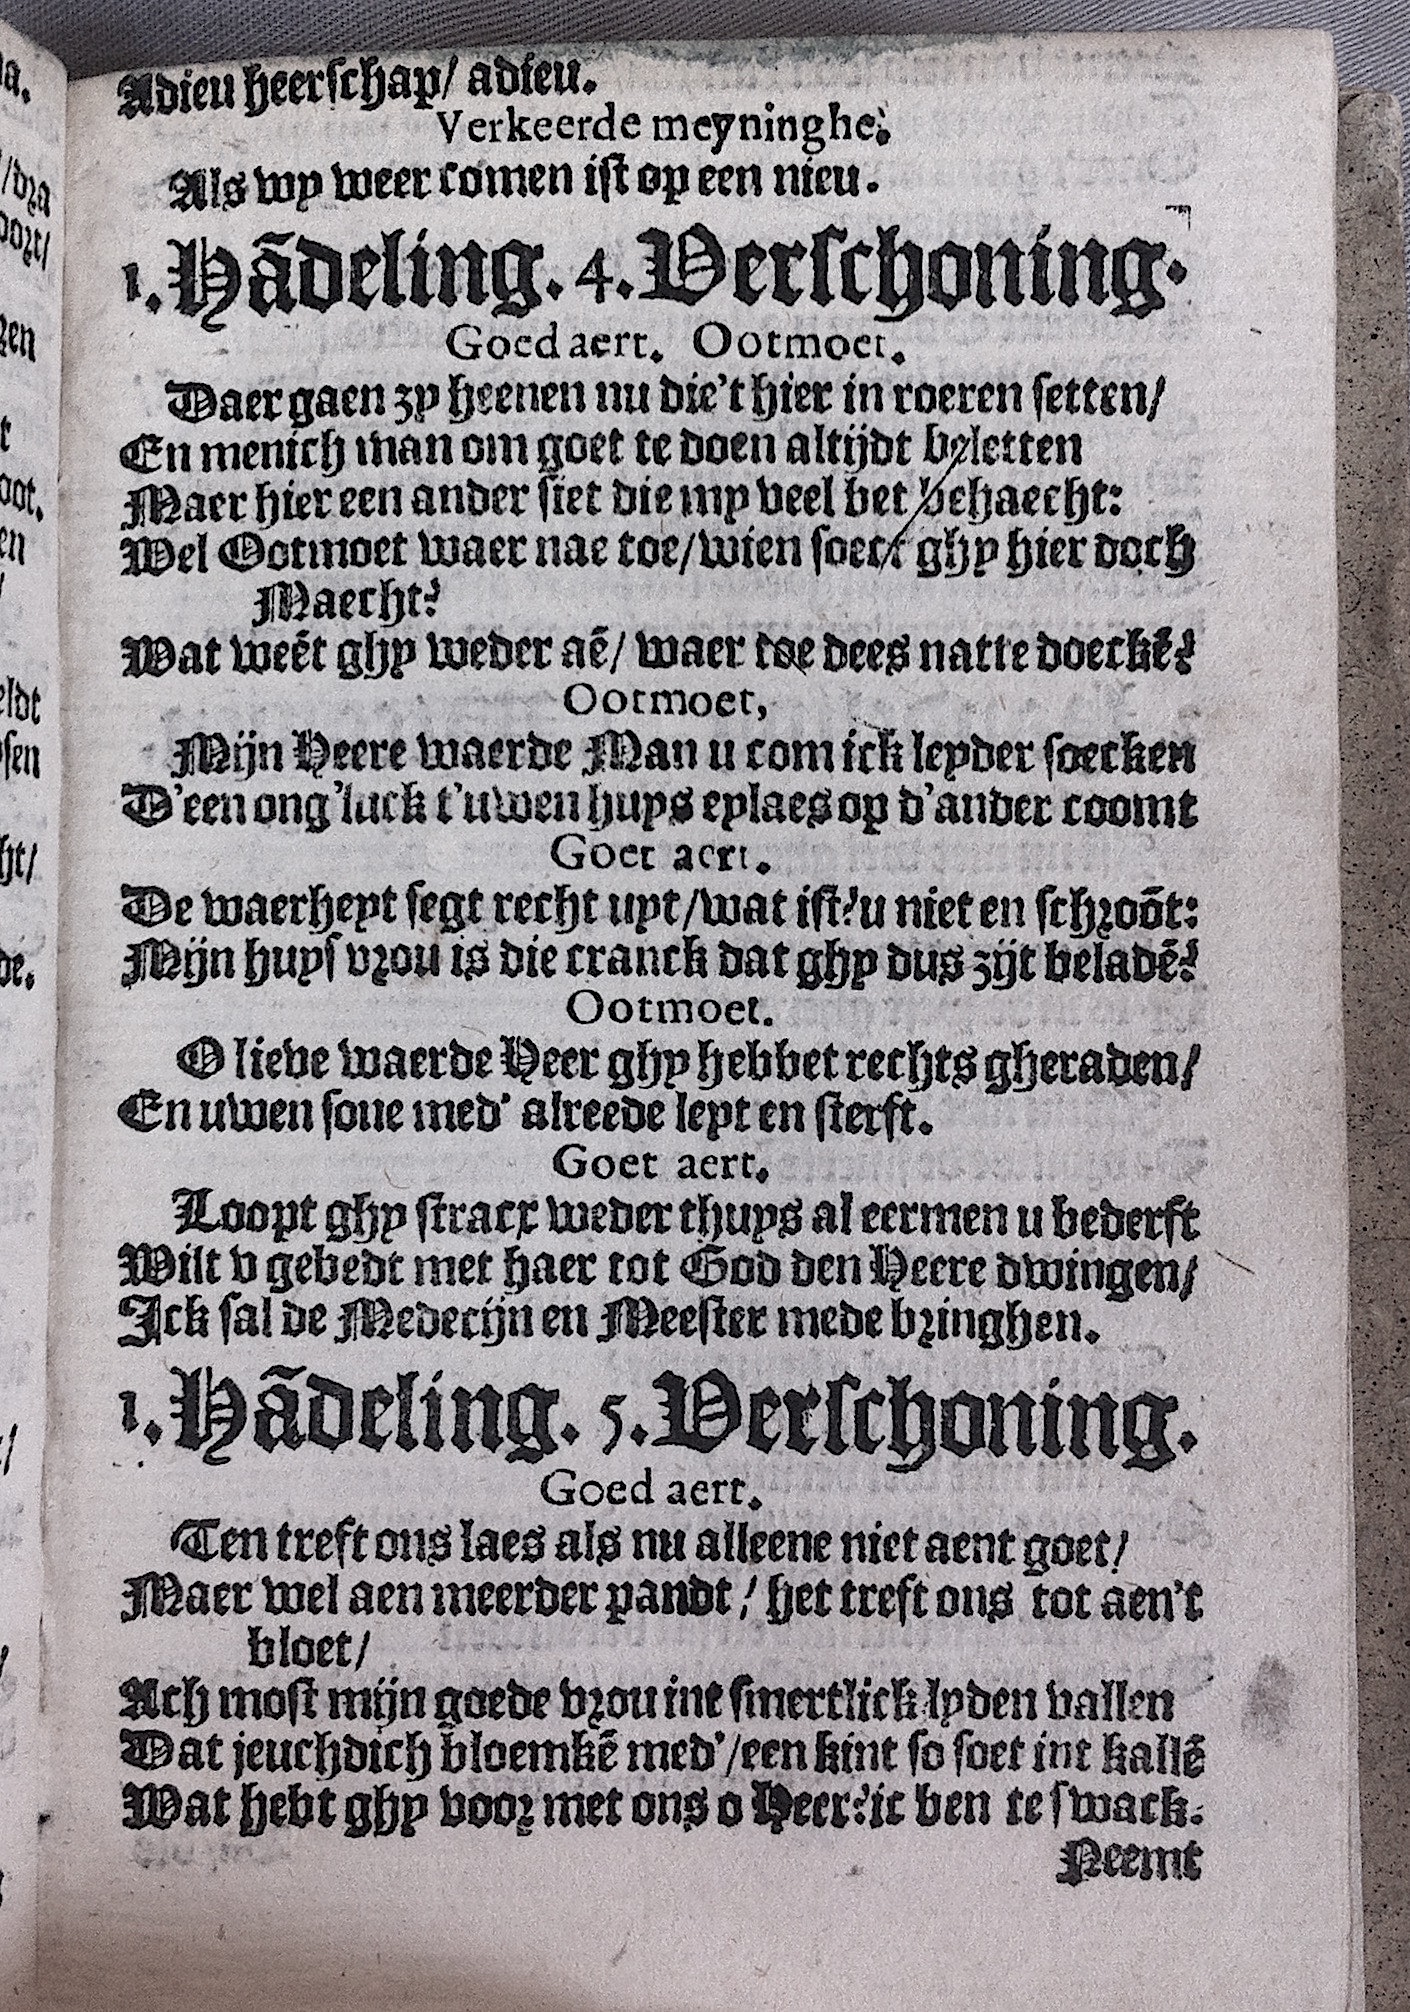 Adieu heerschap/ adieu.
Verkeerde meyninghe.
Als wy weer comen ist op een nieu.
1. Hãdeling. 4. Verschoning.
Goed aert. Ootmoet.
Daer gaen zy heenen nu die't hier in roeren setten/
En menich man om goet te doen altijdt beletten
Maer hier een ander siet die my veel bet behaecht:
Wel Ootmoet waer nae toe/wien soect ghy hier doch
Maecht?
Wat weẽt ghy weder aẽ/ waer toe dees natte doeckẽ?
Ootmoet,
Mijn Heere waerde Man u com ick leyder soecken
D'een ong'luck t'uwen huys eylaes op d'ander coomt
Goet aert.
De waerheyt segt recht uyt/wat ist? u niet en schroõt:
Mijn huys vrou is die cranck dat ghy dus zijt beladẽ?
Ootmoet.
O lieve waerde Heer ghy hebbet rechts gheraden/
En uwen sone med' alreede leyt en sterft.
Goet aert.
Loopt ghy stracx weder thuys al eermen u bederft
Wilt v gebedt met haer tot God den Heere dwingen/
Ick sal de Medecijn en Meester mede bringhen.
1. Hãdeling. 5. Verschoning.
Goed aert.
Ten treft ons laes als nu alleene niet aent goet/
Maer wel aen meerder pandt/ het treft ons tot aen't
bloet/
Ach most mijn goede vrou int smertlick lyden vallen
Dat jeuchdich bloemkẽ med'/een kint so soet int kallẽ
Wat hebt ghy voor met ons o Heer? ic ben te swack.
Neemt